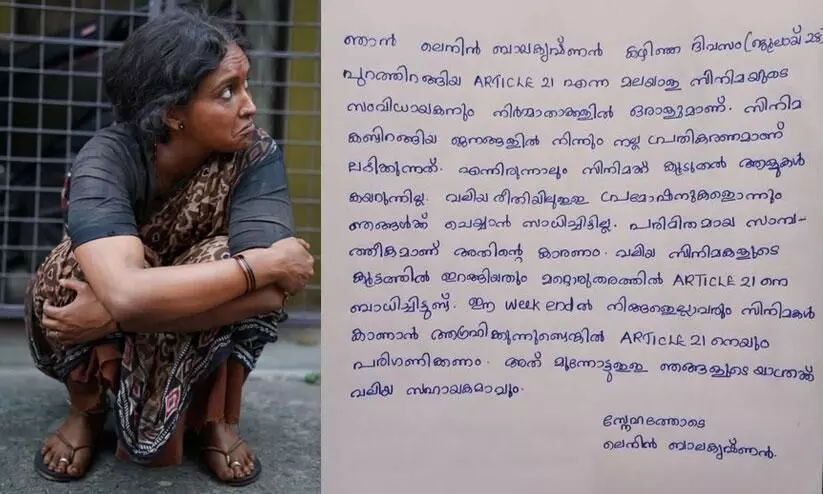 ഞാൻ ലെനിൻ ബാലകൃഷ്ണൻ കഴിഞ്ഞ ദിവസം (ജൂലായ് 28)
പുറത്തിറങ്ങിയ ARTICLE 21 എന്ന മലയാള സിനിമയുടെ
സംവിധായകനും നിർമ്മാതാക്കളിൽ ഒരാളുമാണ്. സിനിമ
കണ്ടിറങ്ങിയ ജനങ്ങളിൽ നിന്നും നല്ല പ്രതികരണമാണ്
ലഭിക്കുന്നത്. എന്നിരുന്നാലും സിനിമക്ക് കൂടുതൽ ആളുകൾ
കയറുന്നില്ല. വലിയ രീതിയിലുള്ള പ്രമോഷനുകളൊന്നും
ഞങ്ങൾക്ക് ചെയ്യാൻ സാധിച്ചിട്ടില്ല. പരിമിതമായ സാമ്പ-
ത്തീകമാണ് അതിന്റെ കാരണം. വലിയ സിനിമകളുടെ
കൂട്ടത്തിൽ ഇറങ്ങിയതും മറ്റൊരുതരത്തിൽ ARTICLE 21 നെ
ബാധിച്ചിട്ടുണ്ട്. ഈ week end ൽ നിങ്ങളെല്ലാവരും സിനിമകൾ
കാണാൻ ആഗ്രഹിക്കുന്നുണ്ടെങ്കിൽ ARTICLE 21 നെയും
പരിഗണിക്കണം. അത് മുന്നോട്ടുള്ള ഞങ്ങളുടെ യാത്രക്ക്
വലിയ സഹായകമാവും.
സ്നേഹത്തോടെ
ലെനിൻ ബാലകൃഷ്ണൻ.